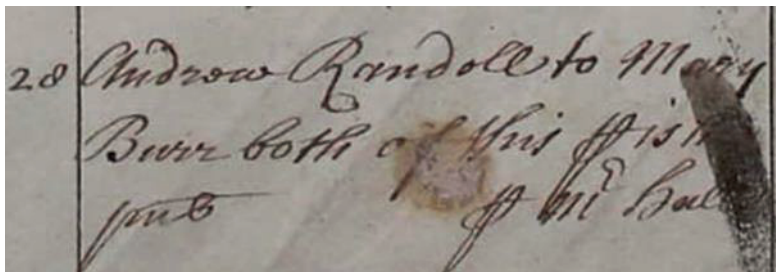 28 Andrew Randoll to Mary
Burr both of this pish
pub p Mr Hall